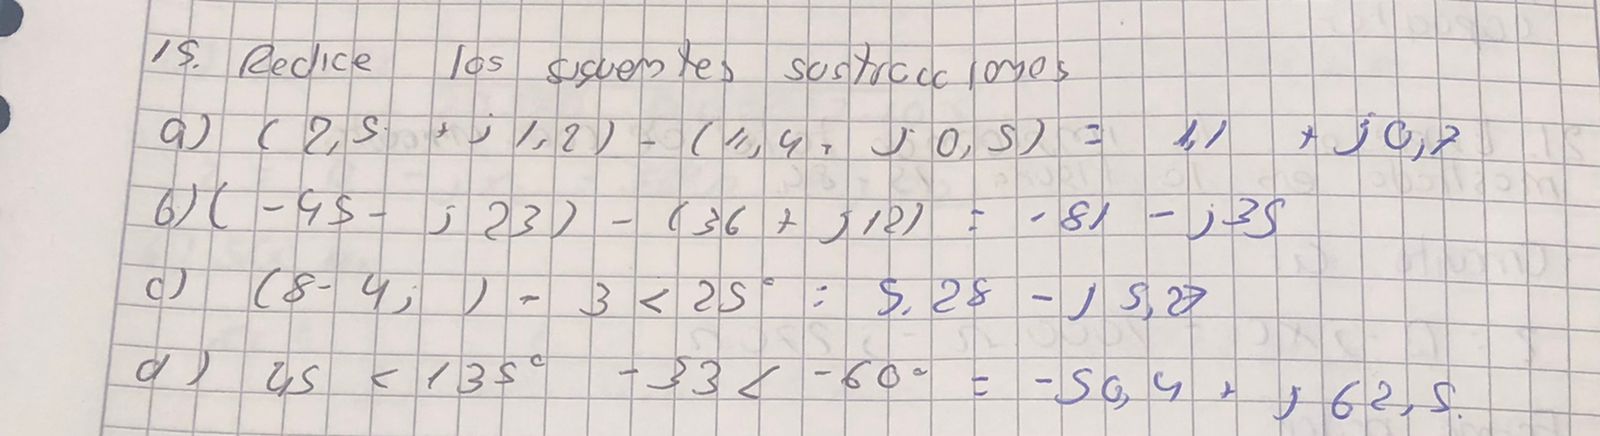 15. Realice las siguientes sustracciones
a) (2,5 + j 1,2) - (1,4 + j 0,5) = 1,1 + j 0,7
b) (-45 - j 23) - (36 + j 12) = -81 - j 35
c) (8 - 4j) - 3 < 25° = 5.28 - j 5,27
d) 45 < 135° - 33 < -60° = -50,4 + j 62,5.